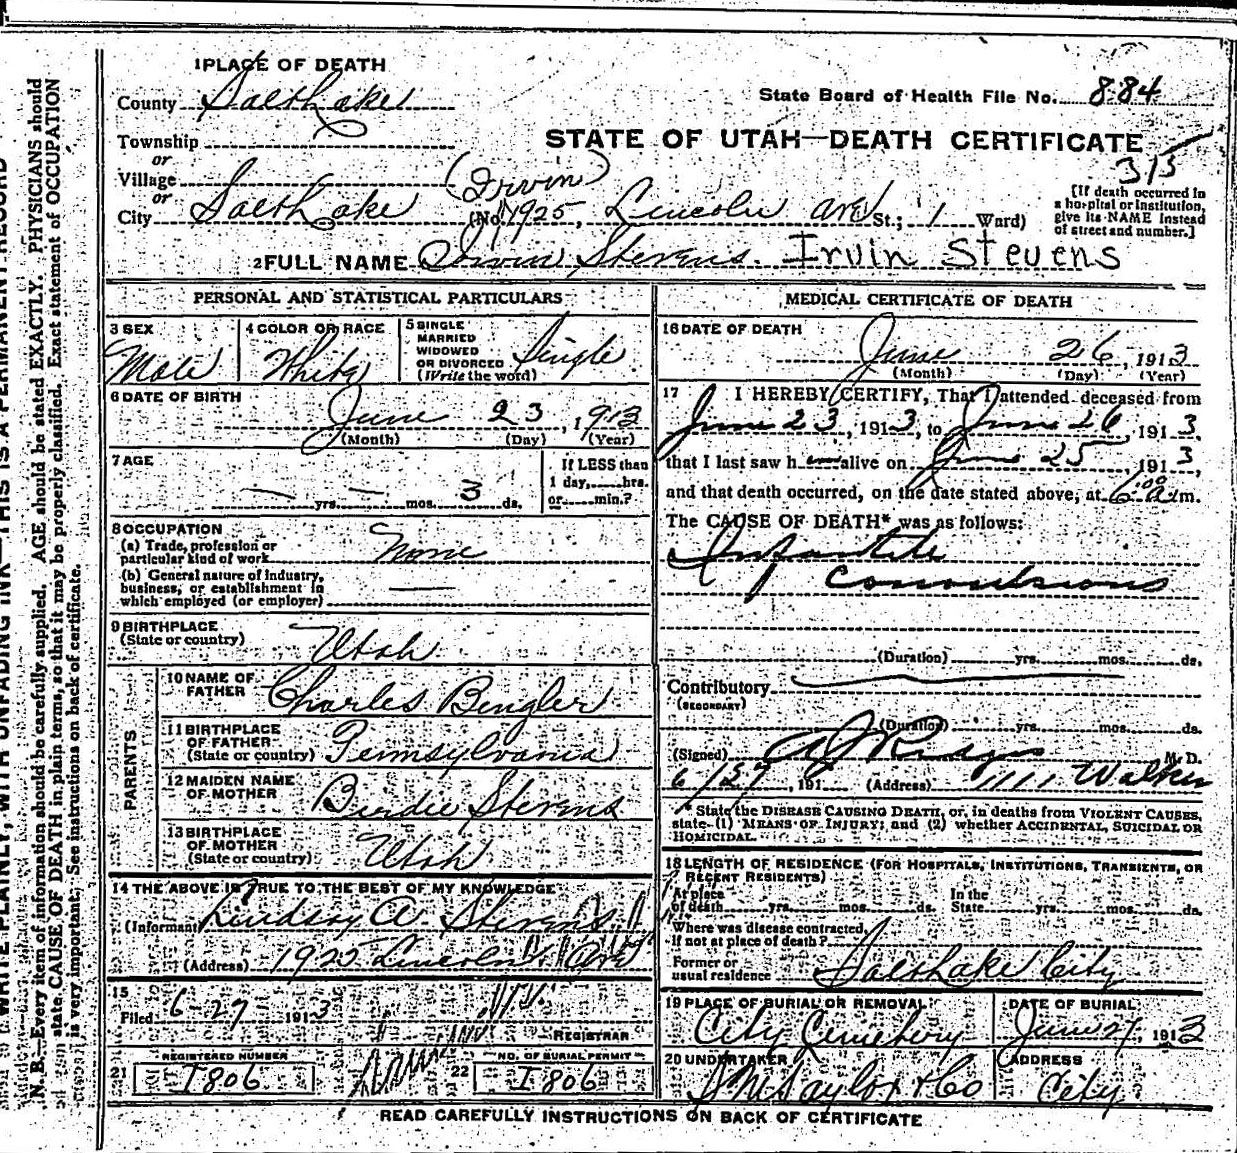 1 PLACE OF DEATH
County Salt Lake
State Board of Health File No. 884
Township
STATE OF UTAH—DEATH CERTIFICATE
or
315
Village
(Irvin)
or
City Salt Lake (No. 1925, Lincoln Ave St.; 1 Ward)
[If death occurred in a hospital or institution, give its NAME instead of street and number.]
2 FULL NAME Irvin Stevens. Irvin Stevens
PERSONAL AND STATISTICAL PARTICULARS
3 SEX Male
4 COLOR OR RACE White
5 SINGLE MARRIED WIDOWED OR DIVORCED (Write the word) Single
6 DATE OF BIRTH
June 23, 1913
(Month) (Day) (Year)
7 AGE
— yrs. — mos. 3 ds.
If LESS than 1 day, hrs. or min.?
8 OCCUPATION
(a) Trade, profession or particular kind of work None
(b) General nature of industry, business, or establishment in which employed (or employer) —
9 BIRTHPLACE
(State or country) Utah
PARENTS
10 NAME OF FATHER Charles Bingler
11 BIRTHPLACE OF FATHER (State or country) Pennsylvania
12 MAIDEN NAME OF MOTHER Birdie Stevens
13 BIRTHPLACE OF MOTHER (State or country) Utah
14 THE ABOVE IS TRUE TO THE BEST OF MY KNOWLEDGE
(Informant Lindsay A Stevens
(Address) 1925 Lincoln Ave
15
Filed 6-27 1913
REGISTRAR
21 REGISTERED NUMBER 1806
22 NO. OF BURIAL PERMIT 1806
MEDICAL CERTIFICATE OF DEATH
16 DATE OF DEATH
June 26, 1913
(Month) (Day) (Year)
17 I HEREBY CERTIFY, That I attended deceased from
June 23, 1913, to June 26, 1913,
that I last saw h im alive on June 25, 1913,
and that death occurred, on the date stated above, at 6:00 a.m.
The CAUSE OF DEATH* was as follows:
Infantile
convulsions
(Duration) yrs. mos. ds.
Contributory
(SECONDARY)
(Duration) yrs. mos. ds.
(Signed) M. D.
6/27, 191 (Address) 1111 Walker
* State the DISEASE CAUSING DEATH, or, in deaths from VIOLENT CAUSES,
state (1) MEANS OF INJURY; and (2) whether ACCIDENTAL, SUICIDAL OR
HOMICIDAL.
18 LENGTH OF RESIDENCE (FOR HOSPITALS, INSTITUTIONS, TRANSIENTS, OR
RECENT RESIDENTS)
At place of death yrs. mos. ds. In the State yrs. mos. ds.
Where was disease contracted,
if not at place of death?
Former or usual residence Salt Lake City
19 PLACE OF BURIAL OR REMOVAL City Cemetery
DATE OF BURIAL June 27, 1913
20 UNDERTAKER S M Taylor & Co
ADDRESS City
READ CAREFULLY INSTRUCTIONS ON BACK OF CERTIFICATE
WRITE PLAINLY, WITH UNFADING INK—THIS IS A PERMANENT RECORD
N. B.—Every item of information should be carefully supplied. AGE should be stated EXACTLY. PHYSICIANS should
state CAUSE OF DEATH in plain terms, so that it may be properly classified. Exact statement of OCCUPATION
is very important. See instructions on back of certificate.